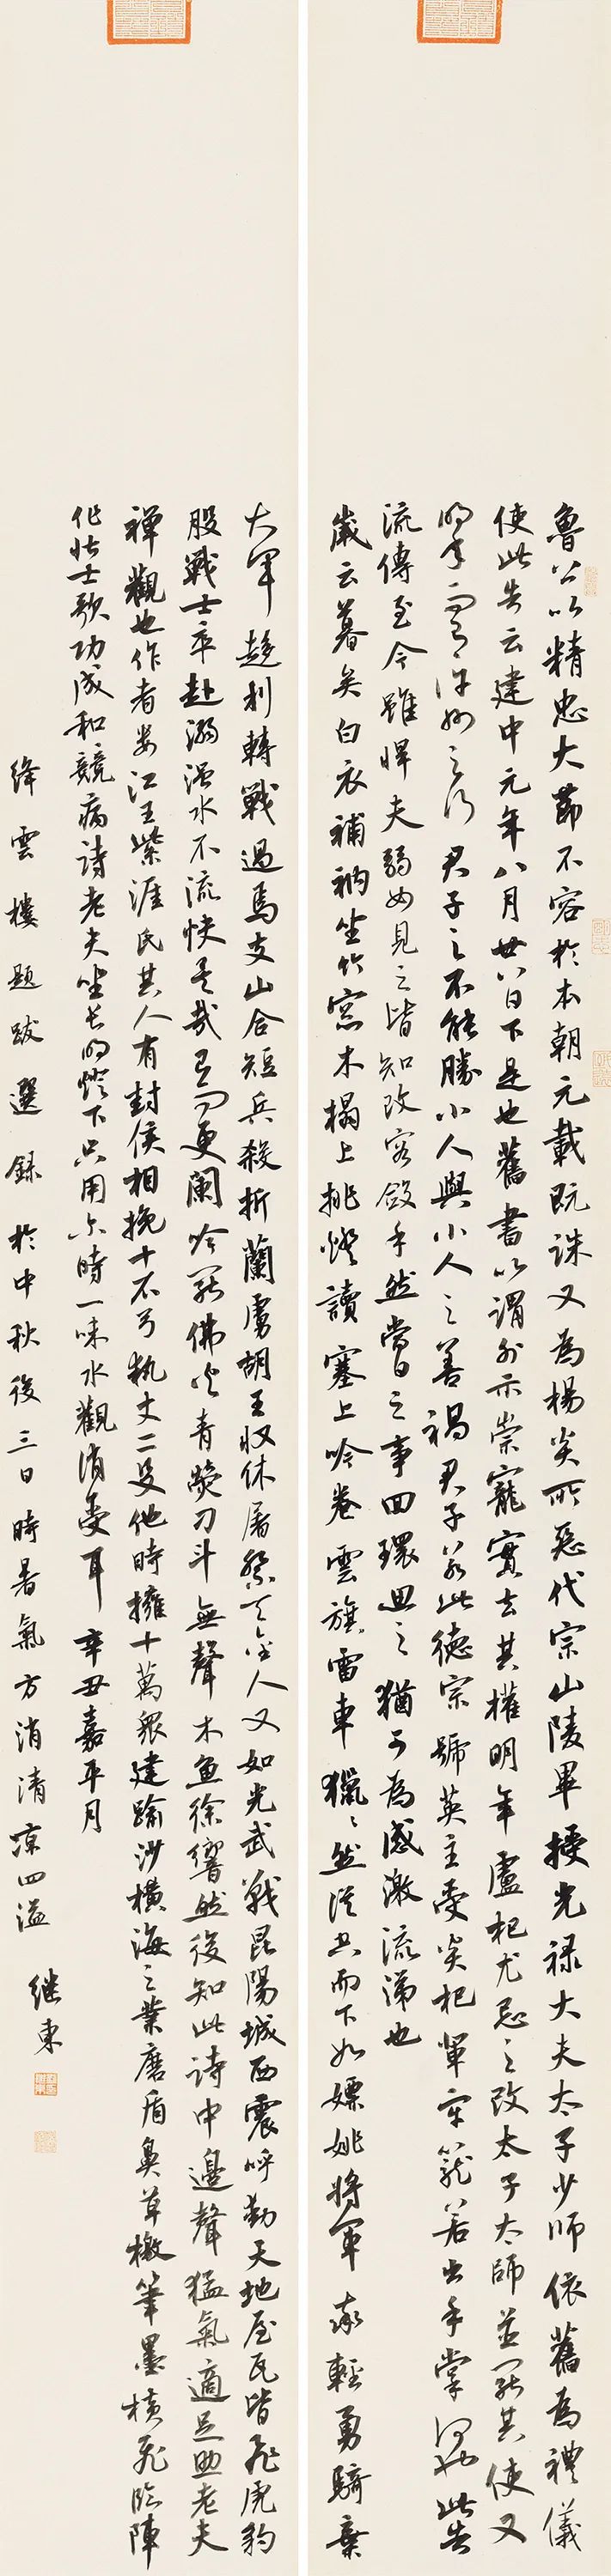 魯公以精忠大節不容於本朝元載既誅又為楊炎所惡代宗山陵畢授光祿大夫太子少師依舊為禮儀
使此告云建中元年八月廿八日下是也舊書以謂外示崇寵實去其權明年盧杞尤忌之改太子太師並罷其使又
明年而有汝州之行君子之不能勝小人與小人之善禍君子若此德宗號英主受炎杞輩牢籠若出手掌何也此告
流傳至今雖悍夫弱女見之皆知改容斂手然當日之事回環思之猶可為感激流涕也
歲云暮矣白衣補衲坐竹窗木榻上挑燈讀塞上吟卷雲旗雷車獵獵然從空而下如嫖姚將軍率輕勇騎棄
大軍趨利轉戰過焉支山合短兵殺折蘭虜胡王收休屠祭天金人又如光武戰昆陽城西震呼動天地屋瓦皆飛虎豹
股戰士卒赴溺滍水不流快是哉已而更闌吟罷佛火青熒刁斗無聲木魚徐響然後知此詩中邊聲猛氣適足助老夫
禪觀也作者婁江王紫涯氏其人有封侯相挽十石弓執丈二殳他時擁十萬眾建踰沙橫海之業磨盾鼻草檄筆墨橫飛臨陣
作壯士歌功成和競病詩老夫坐長明燈下只用尔時一味水觀消受耳 辛丑嘉平月
絳雲樓題跋選錄於中秋後三日時暑氣方消清涼四溢 继東